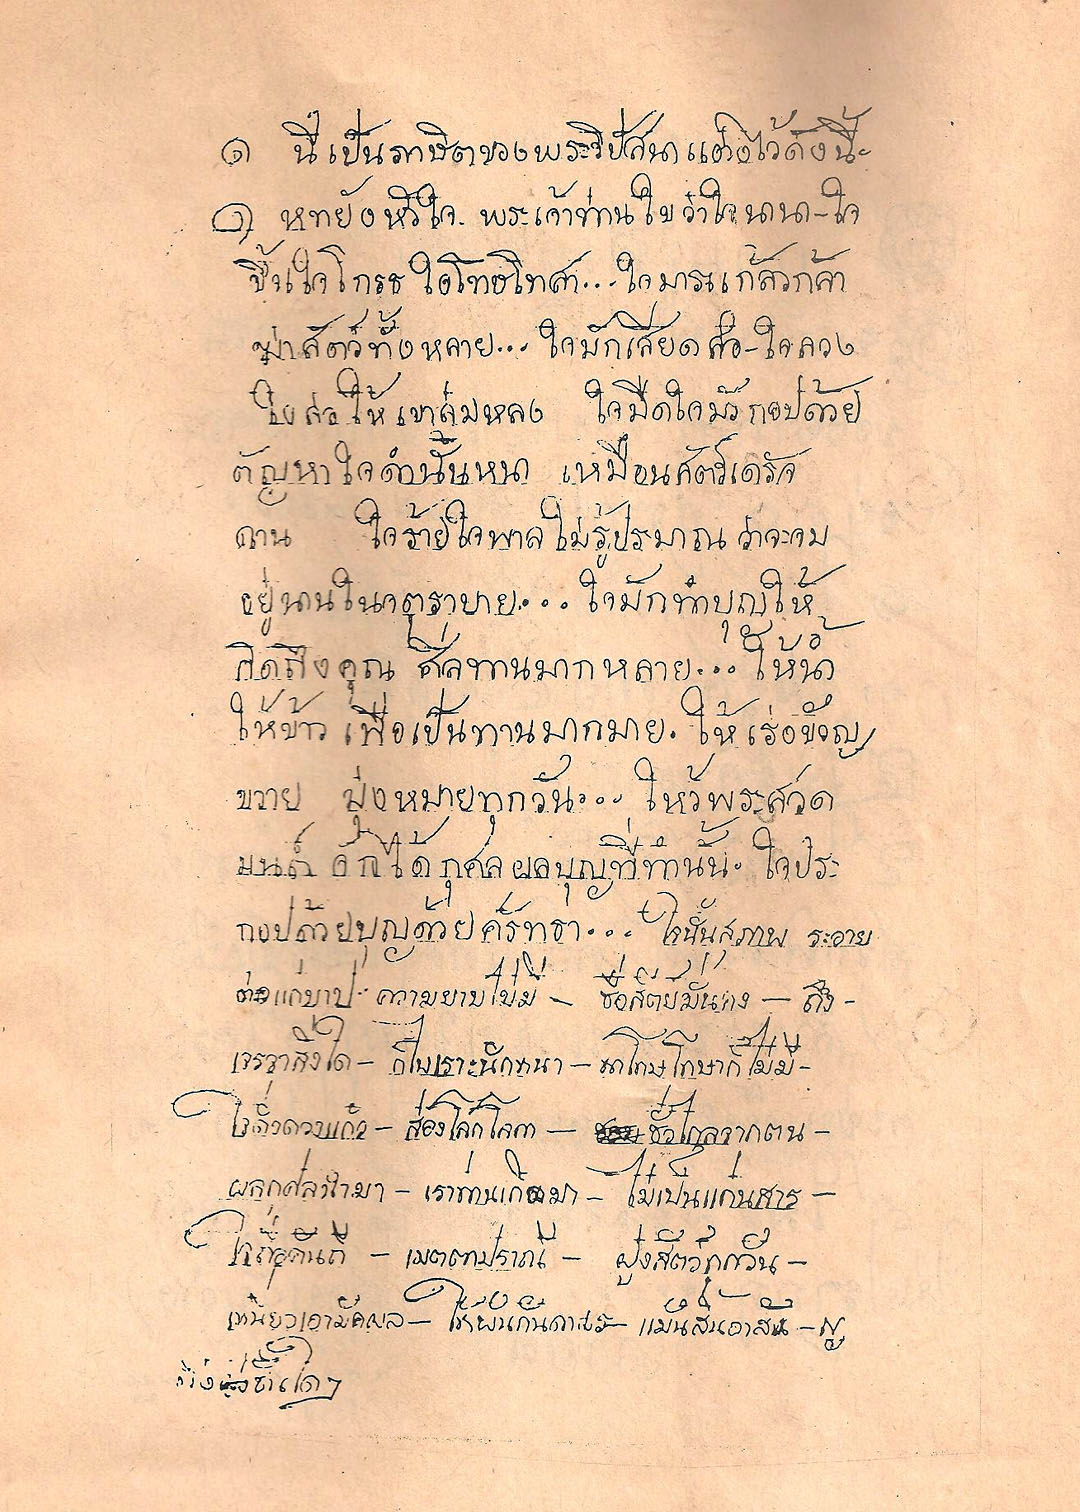 ๑ นี่เป็นภาษิตของพระวิปัสนา แต่งไว้ดังนี้ะ
๑ หทยังหัวใจ. พระเจ้าท่านใบว่าใจนานา-ใจ
ขึ้นใจโกรธ ใจโทษโทสา... ใจมารแก้ลวกล้า
ฆ่าสัตว์ทั้งหลาย... ใจมักเสียดส่อ-ใจลวง
ให้เขาลุ่มหลง ใจมืดใจมัวกอปด้วย
ตัญหาใจดำนั้นหนา เหมือนสัตว์เดรัจ
ฉาน ใจร้ายใจพาลไม่รู้ประมาณ ว่าจะจม
อยู่นานในจตุราบาย... ใจมักทำบุญให้
คิดถึงคุณ ศีลทานมากหลาย... ให้น้ำ
ให้ข้าว เพื่อเป็นทานมากมาย. ให้
ขวาย มุ่งหมายทุกวัน... ไหว้พระสวด
มนต์ จักได้กุศลผลบุญที่ทำนั้น. ใจประ
กอปด้วยบุญด้วยศรัทธา... ใจนั้นสุภาพ ระอาย
ต่อแก่บาป ความยาบไม่มี – ซื่อสัตย์มั่นคง – ถึง -
เจรจาสิ่งใด – ก็ไพเราะนักหนา – โทษโทษาก็ไม่มี-
ใจดั่งดวงแก้ว – ส่องโลกโลกา – ชั่วไกลจากตน –
ผลกุศลนำมา – เราท่านเกิดมา – ไม่เป็นแก่นสาร –
– เมตตาปราณี – ฝูงสัตว์ทุกวัน –